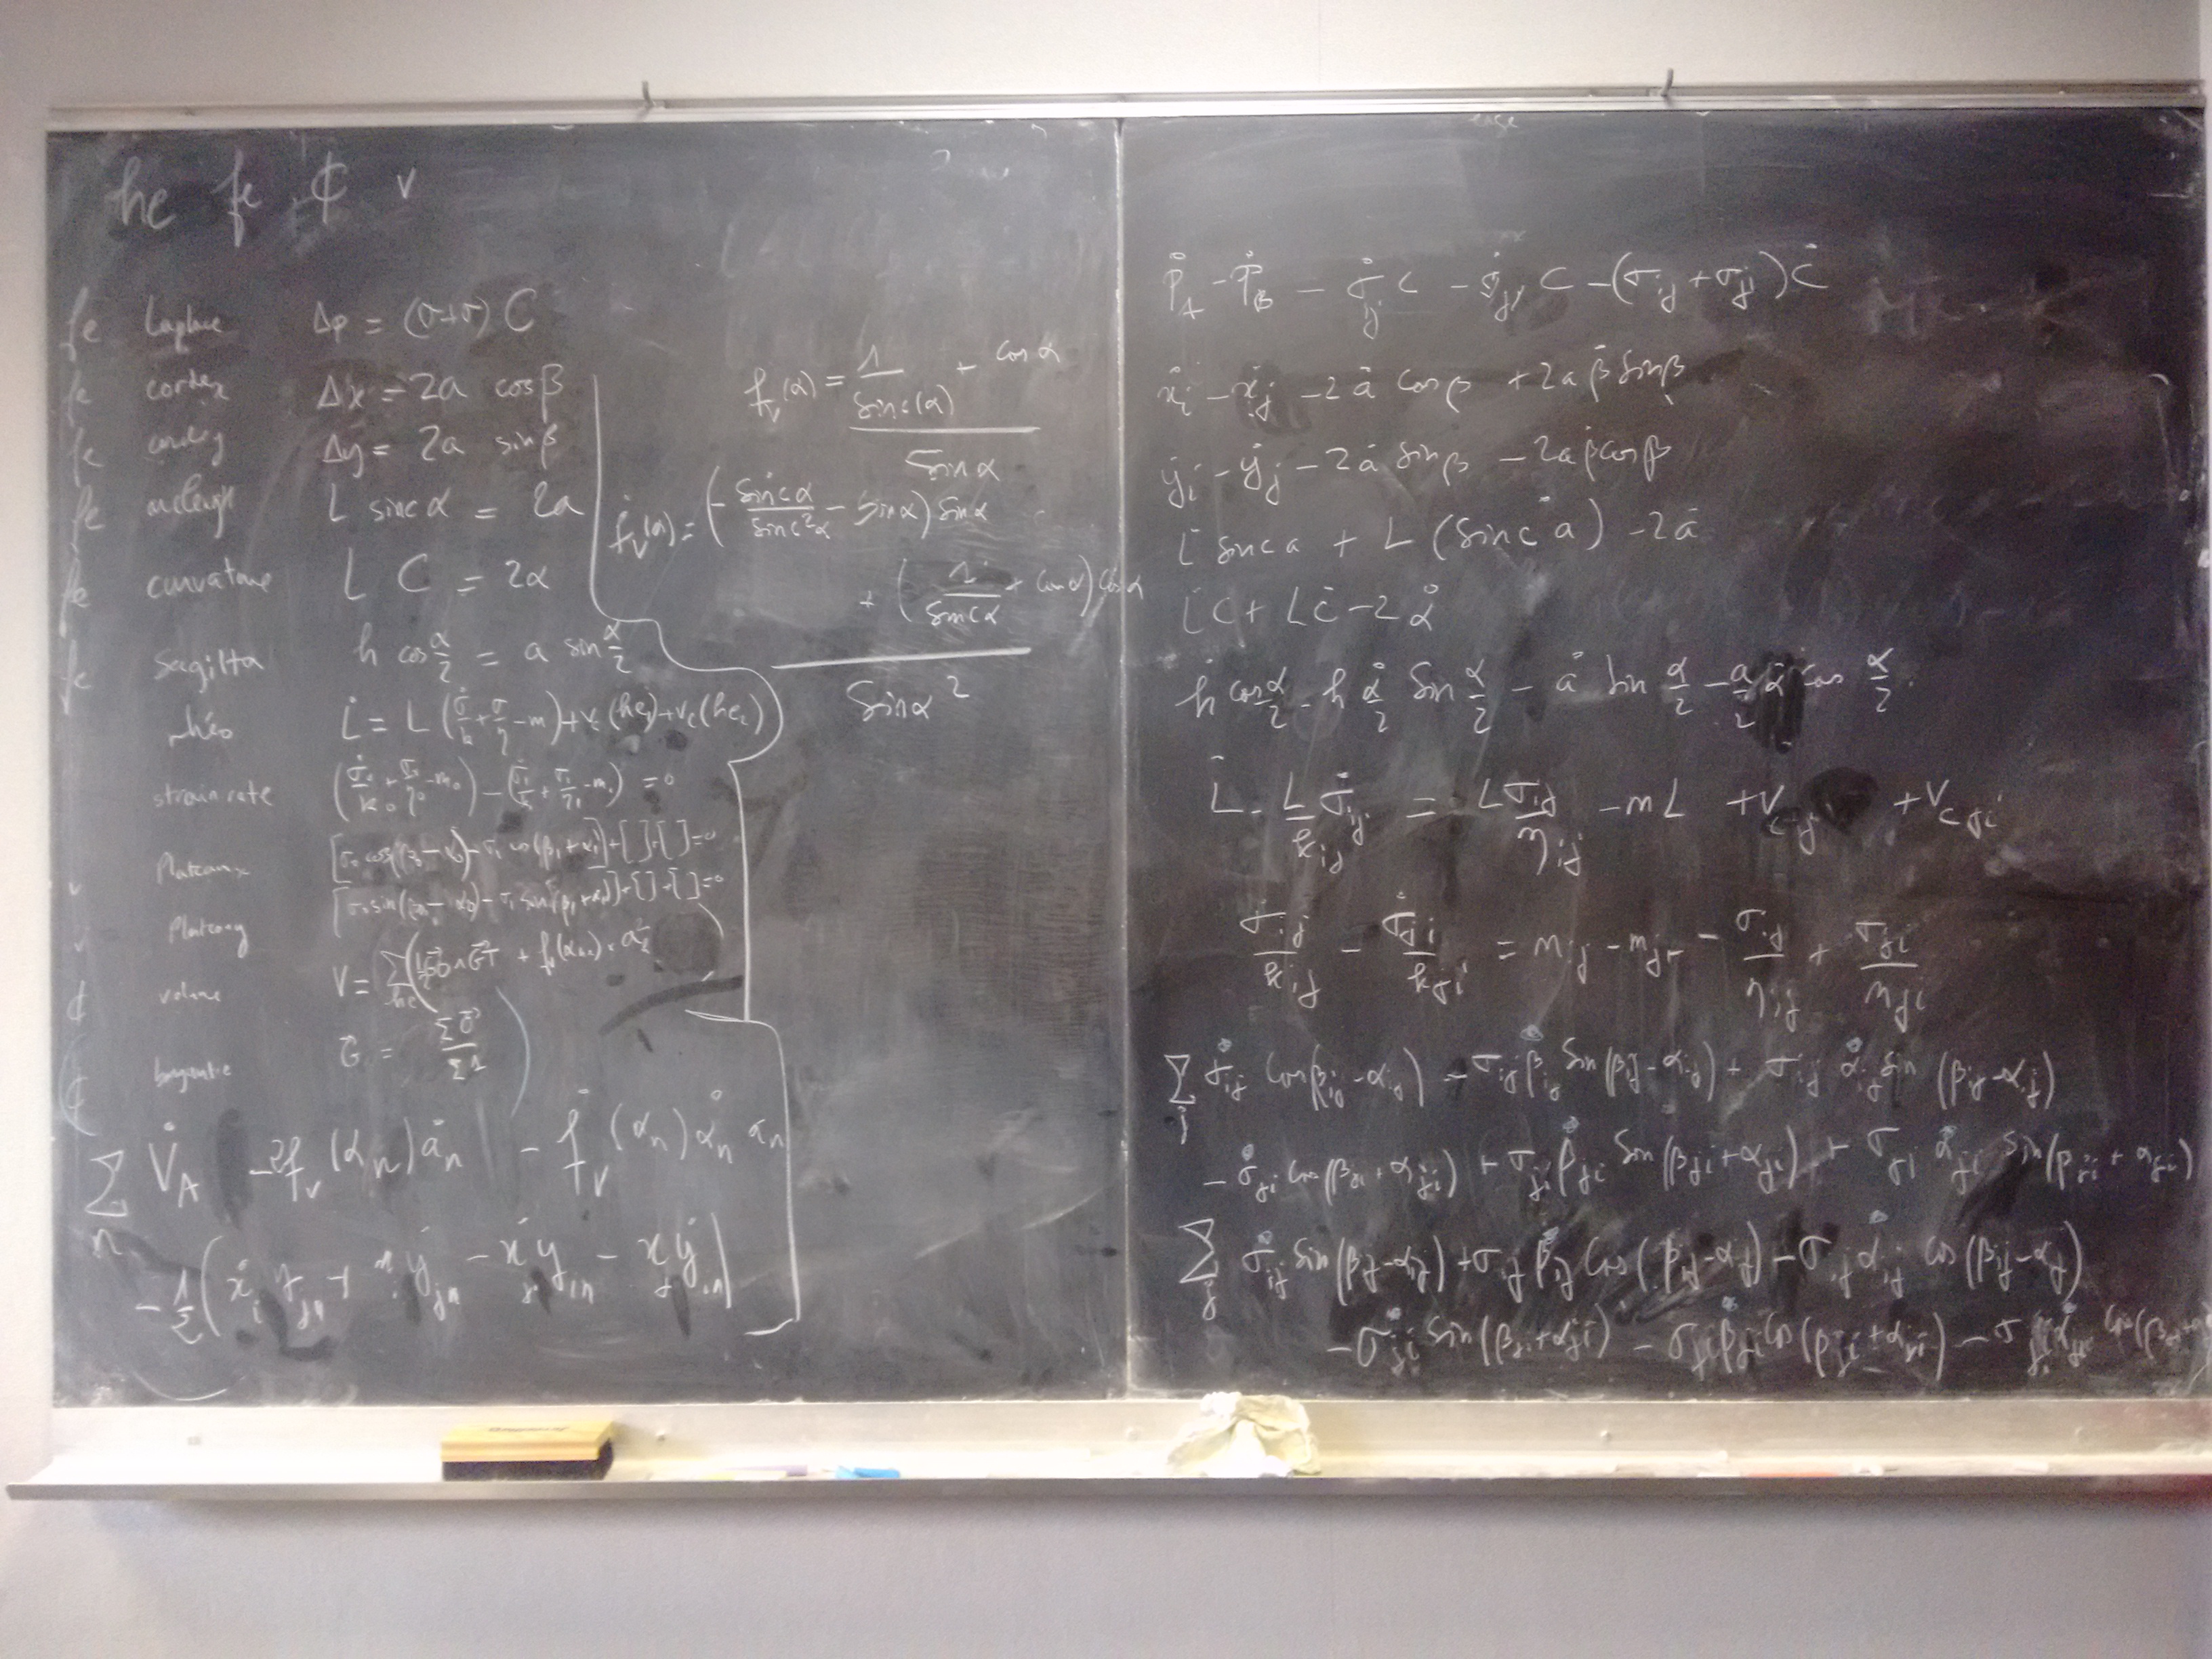 he fe ₵ v
fe Laplace Δp = (σ+σ) C
fe cordex Δx = 2a cosβ
fe cordey Δy = 2a sinβ
fe arclength L sinc α = 2a
fe curvature L C = 2α
fe Sagitta h cos α/2 = a sin α/2
rhéo L̇ = L (σ̇/k + σ/η - m) + v_c(he_1) + v_c(he_2)
strain rate (σ̇_0/k_0 + σ_0/η_0 - m_0) - (σ̇_1/k_1 + σ_1/η_1 - m_1) = 0
v Plateaux [σ_0 cos(β_0 - α_0) - σ_1 cos(β_1 + α_1)] + [ ] + [ ] = 0
v Plateauy [σ_0 sin(β_0 - α_0) - σ_1 sin(β_1 + α_1)] + [ ] + [ ] = 0
₵ volume V = Σ_he
₵ G = ΣO/Σ1
Σ_n V̇_A - 2f_v(α_n) ȧ_n - ḟ_v(α_n) α̇_n a_n
- 1/2 (ẋ_i y_jn + x_i ẏ_jn - ẋ_j y_in - x_j ẏ_in)
f_v(α) = (1/sinc(α) + cos α) / sin α
ḟ_v(α) = ((- sinc α / sinc²α - sin α) sin α
+ (1/sinc α + cos α) cos α) / sin α²
Ṗ_A - Ṗ_B - σ̇_ij C - σ̇_ji C - (σ_ij + σ_ji) Ċ
ẋ_i - ẋ_j - 2ȧ cosβ + 2a β̇ sinβ
ẏ_i - ẏ_j - 2ȧ sinβ - 2a β̇ cosβ
L̇ sinc a + L (sinc a) - 2ȧ
L̇C + LĊ - 2α̇
ḣ cos α/2 - h α̇/2 sin α/2 - ȧ sin α/2 - a/2 α̇ cos α/2
L̇ - L/k_ij σ̇_ij = L σ_ij/η_ij - mL + v_cij + v_cji
σ̇_ij/k_ij - σ̇_ji/k_ji = m_ij - m_ji - σ_ij/η_ij + σ_ji/η_ji
Σ_j σ̇_ij cos(β_ij - α_ij) - σ_ij β̇_ij sin(β_ij - α_ij) + σ_ij α̇_ij sin(β_ij - α_ij)
- σ̇_ji cos(β_ji + α_ji) + σ_ji β̇_ji sin(β_ji + α_ji) + σ_ji α̇_ji sin(β_ji + α_ji)
Σ_j σ̇_ij sin(β_ij - α_ij) + σ_ij β̇_ij cos(β_ij - α_ij) - σ_ij α̇_ij cos(β_ij - α_ij)
- σ̇_ji sin(β_ji + α_ji) - σ_ji β̇_ji cos(β_ji + α_ji) - σ_ji α̇_ji cos(β_ji +